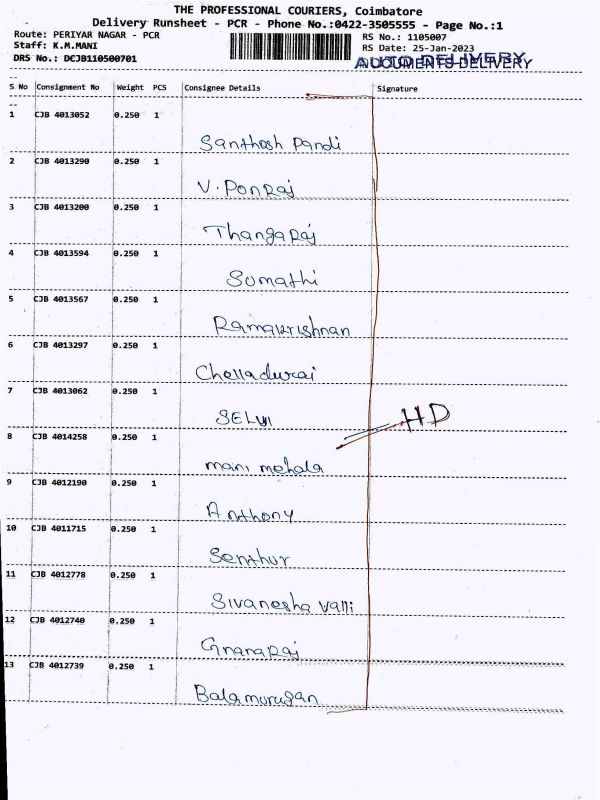 THE PROFESSIONAL COURIERS, Coimbatore
Delivery Runsheet - PCR - Phone No.:0422-3505555 - Page No.:1
Route: PERIYAR NAGAR - PCR
Staff: K.M.MANI
DRS No.: DCJB110500701
RS No.: 1105007
RS Date: 25-Jan-2023
AUTO DELIVERY
DOCUMENTS DELIVERY
S No Consignment No Weight PCS Consignee Details Signature
1 CJB 4013052 0.250 1
Santhosh Pandi
2 CJB 4013290 0.250 1
V. Ponraj
3 CJB 4013200 0.250 1
Thangaraj
4 CJB 4013594 0.250 1
Sumathi
5 CJB 4013567 0.250 1
Ramakrishnan
6 CJB 4013297 0.250 1
Chelladurai
7 CJB 4013062 0.250 1
SELVI
HD
8 CJB 4014258 0.250 1
mani mehala
9 CJB 4012190 0.250 1
Anthony
10 CJB 4011715 0.250 1
Senthur
11 CJB 4012778 0.250 1
Sivanesha valli
12 CJB 4012740 0.250 1
Gnanaraj
13 CJB 4012739 0.250 1
Balamurugan